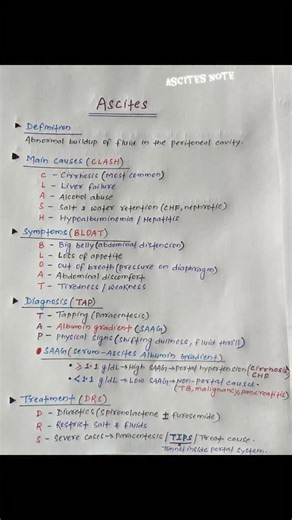 ASCITES NOTE
Ascites
Definition
Abnormal buildup of fluid in the peritoneal cavity.
Main causes (CLASH)
C - Cirrhosis (most common)
L - Liver failure
A - Alcohol abuse
S - Salt & water retention (CHF, nephrotic)
H - Hypoalbuminemia / Hepatitis
Symptoms (BLOAT)
B - Big belly (abdominal distension)
L - Loss of appetite
O - Out of breath (pressure on diaphragm)
A - Abdominal discomfort
T - Tiredness / weakness
Diagnosis (TAP)
T - Tapping (paracentesis)
A - Albumin gradient (SAAG)
P - Physical signs (shifting dullness, fluid thrill)
SAAG (serum-Ascites Albumin Gradient)
• ≥1.1 g/dL → High SAAG → portal hypertension (Cirrhosis, CHF
• <1.1 g/dL → Low SAAG → non-portal causes.
(TB, malignancy, pancreatitis)
Treatment (DRS)
D - Diuretics (spironolactone ± furosemide)
R - Restrict salt & fluids
S - Severe cases → Paracentesis / TIPS / Treat cause.
Tunnel inside portal system.